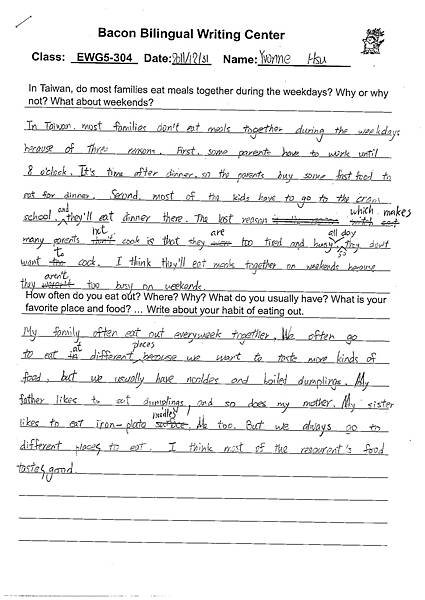 Bacon Bilingual Writing Center
Class: EWG5-304 Date: 2011/12/31 Name: Yvonne Hsu
In Taiwan, do most families eat meals together during the weekdays? Why or why
not? What about weekends?
In Taiwan, most families don't eat meals together during the weekdays
because of three reasons. First, some parents have to work until
8 o'clock. It's time after dinner, so the parents buy some fast food to
eat for dinner. Second, most of the kids have to go to the cram
school and they'll eat dinner there. The last reason which makes
many parents not cook is that they are too tired and busy all day so they don't
want to cook. I think they'll eat meals together on weekends because
they aren't too busy on weekends.
How often do you eat out? Where? Why? What do you usually have? What is your
favorite place and food? ... Write about your habit of eating out.
My family often eat out everyweek together. We often go
to eat at different places because we want to taste more kinds of
food, but we usually have noodles and boiled dumplings. My
father likes to eat dumplings, and so does my mother. My sister
likes to eat iron-plate noodles, Me too. But we always go to
different places to eat. I think most of the restaurant's food
tastes good.